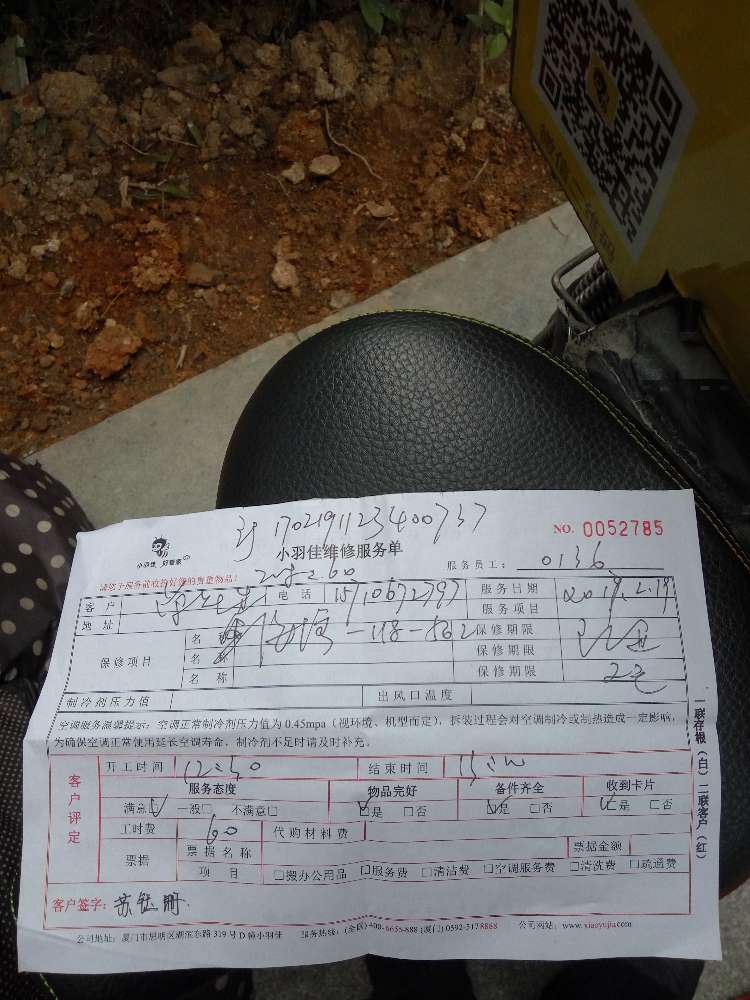 1702191123400737
NO. 0052785
小羽佳维修服务单
小羽佳 好管家
服务员工: 0136
请您于服务前收拾好您的贵重物品!
客户 电话 15710672797 服务日期 2019.2.19
地址 服务项目
保修项目 名称 保修期限
名称 保修期限
名称 保修期限
制冷剂压力值 出风口温度
空调服务温馨提示: 空调正常制冷剂压力值为 0.45mpa (视环境、机型而定), 拆装过程会对空调制冷或制热造成一定影响,
为确保空调正常使用延长空调寿命, 制冷剂不足时请及时补充。
客户评定
开工时间 12:40 结束时间
服务态度 物品完好 备件齐全 收到卡片
满意☑ 一般□ 不满意□ ☑是 □否 ☑是 □否 ☑是 □否
工时费 60 代购材料费
票据 票据名称 票据金额
项目 □搬办公用品 □服务费 □清洁费 □空调服务费 □清洗费 □疏通费
客户签字:
公司地址: 厦门市思明区湖滨东路 319 号 D 幢小羽佳 服务热线: (全国) 400-6655-888 (厦门) 0592-5178868 公司网站: www.xiaoyujia.com
一联存根(白) 二联客户(红)